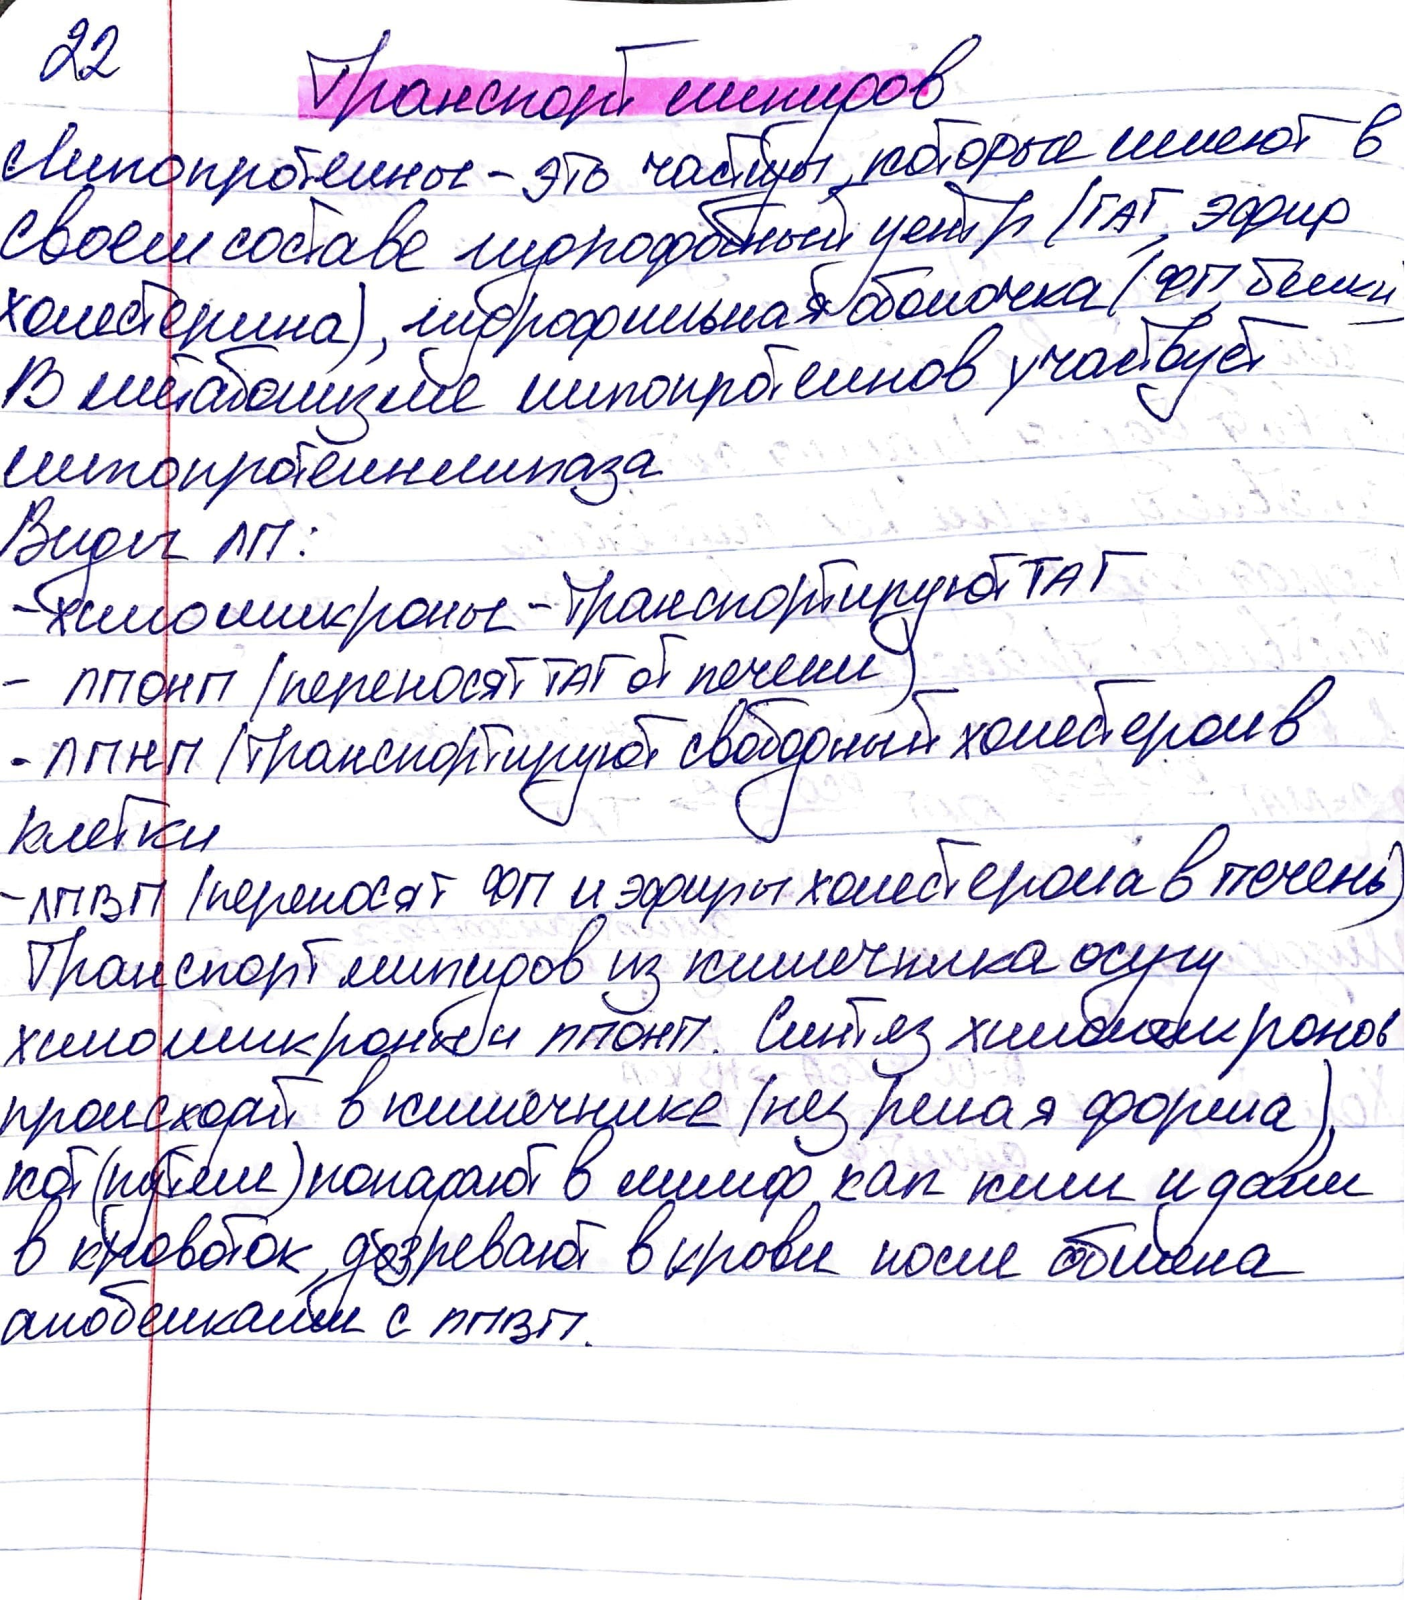 22
Транспорт липидов
Липопротеины - это частицы, которые имеют в
своем составе гидрофобный центр (ТАГ, эфир
холестерина), гидрофильная оболочка (ФП, белки)
В метаболизме липопротеинов участвует
липопротеинлипаза
Виды ЛП:
- хиломикроны - транспортируют ТАГ
- ЛПОНП (переносят ТАГ от печени)
- ЛПНП (транспортируют свободный холестерол в
клетки
- ЛПВП (переносят ФП и эфиры холестерола в печень)
Транспорт липидов из кишечника осущ
хиломикроны и ЛПОНП. Синтез хиломикронов
происходит в кишечнике (незрелая форма),
кот (путем) попадают в лимф кап киш и далее
в кровоток, дозревают в крови после обмена
апобелками с ЛПВП.